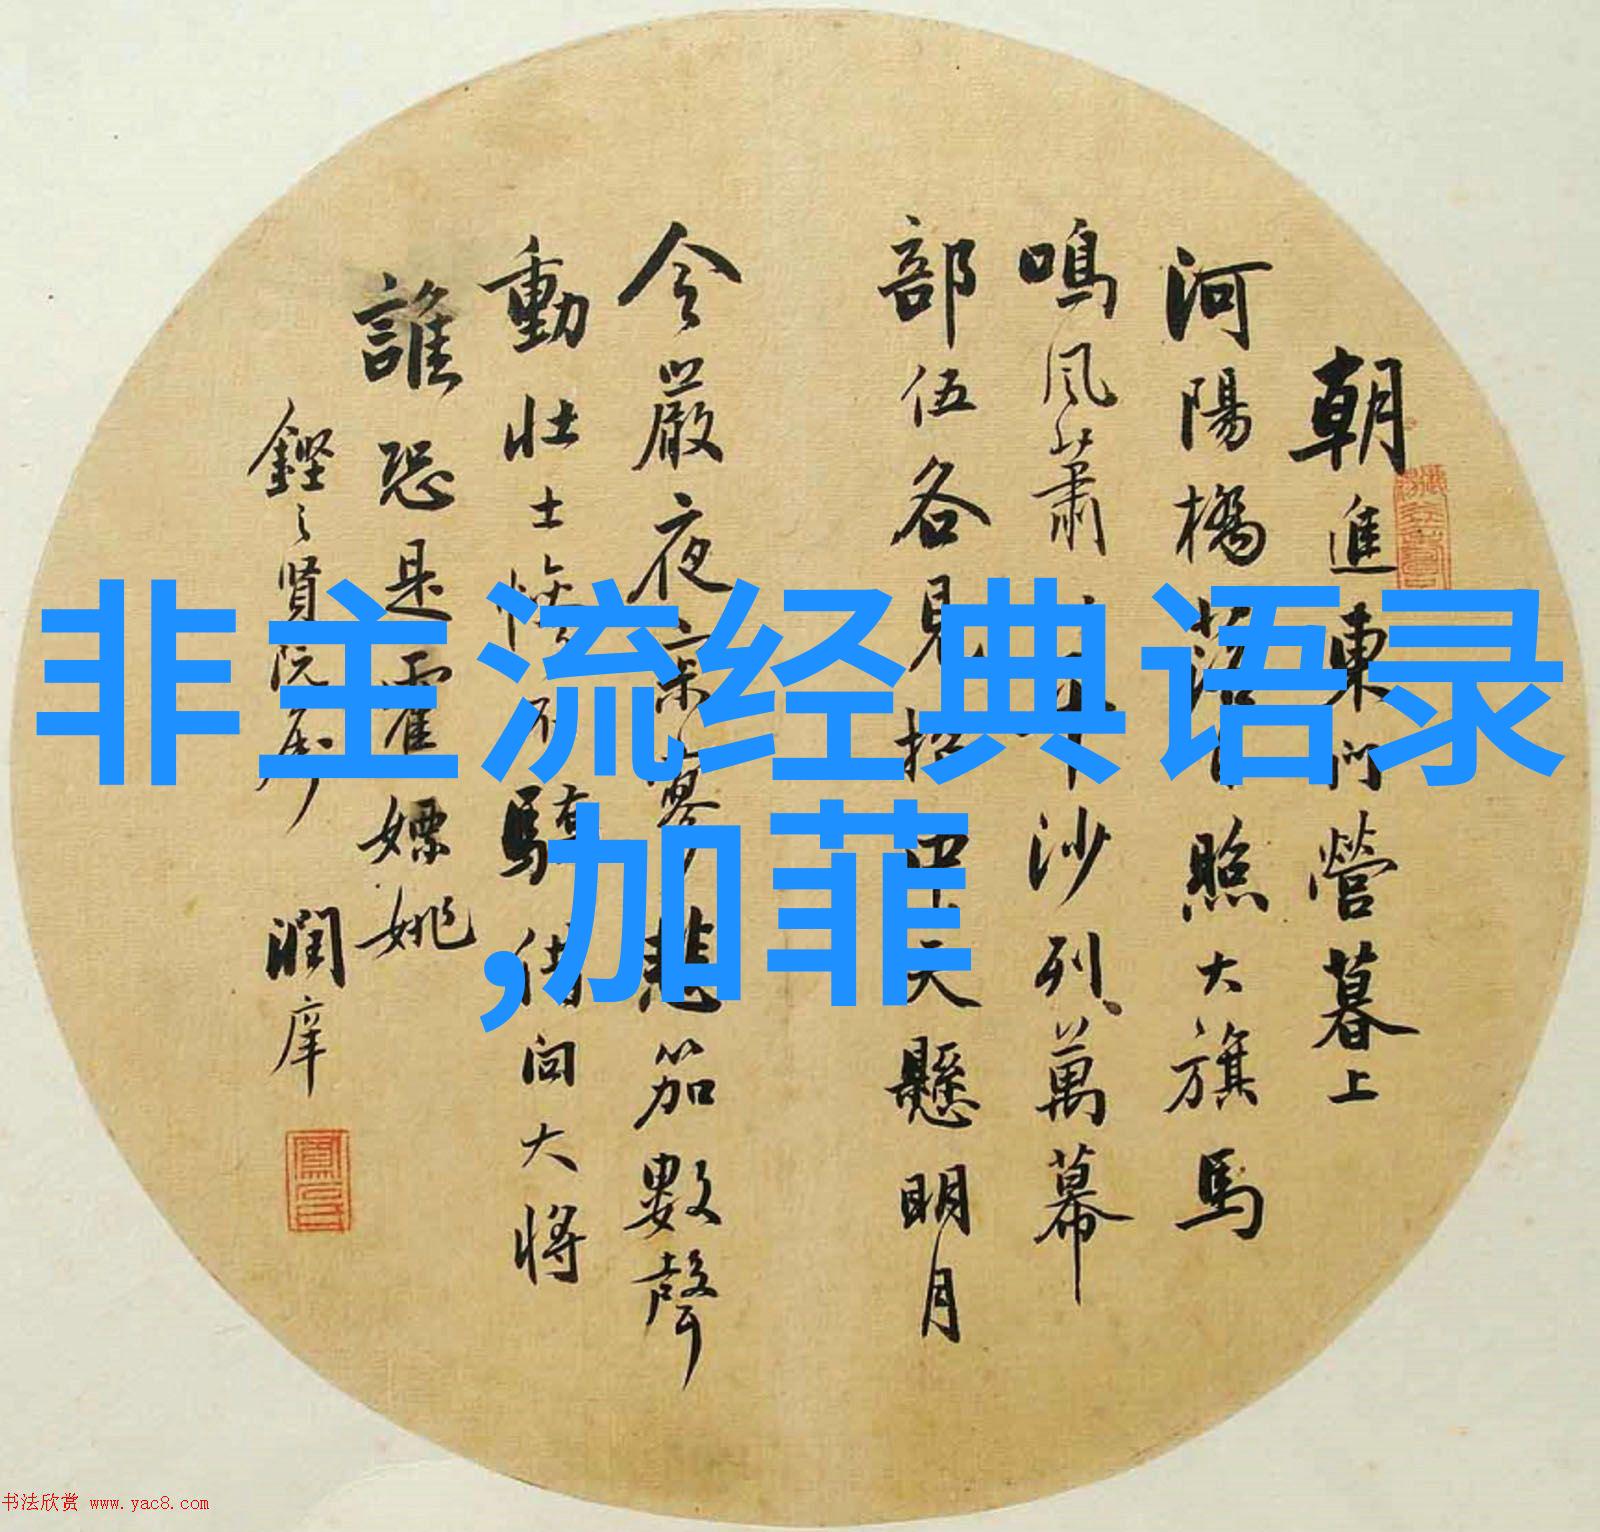 朝進東門營暮上
河陽橋落日照大旗馬
鳴風蕭平沙列萬幕
部伍各見招中天懸明月
令嚴夜寂寥悲笳數聲
動壯士慘不驕借問大將
誰恐是霍嫖姚
賢院屬
潤庠
非主流经典语录
,加菲
书法欣赏 www.yac8.com